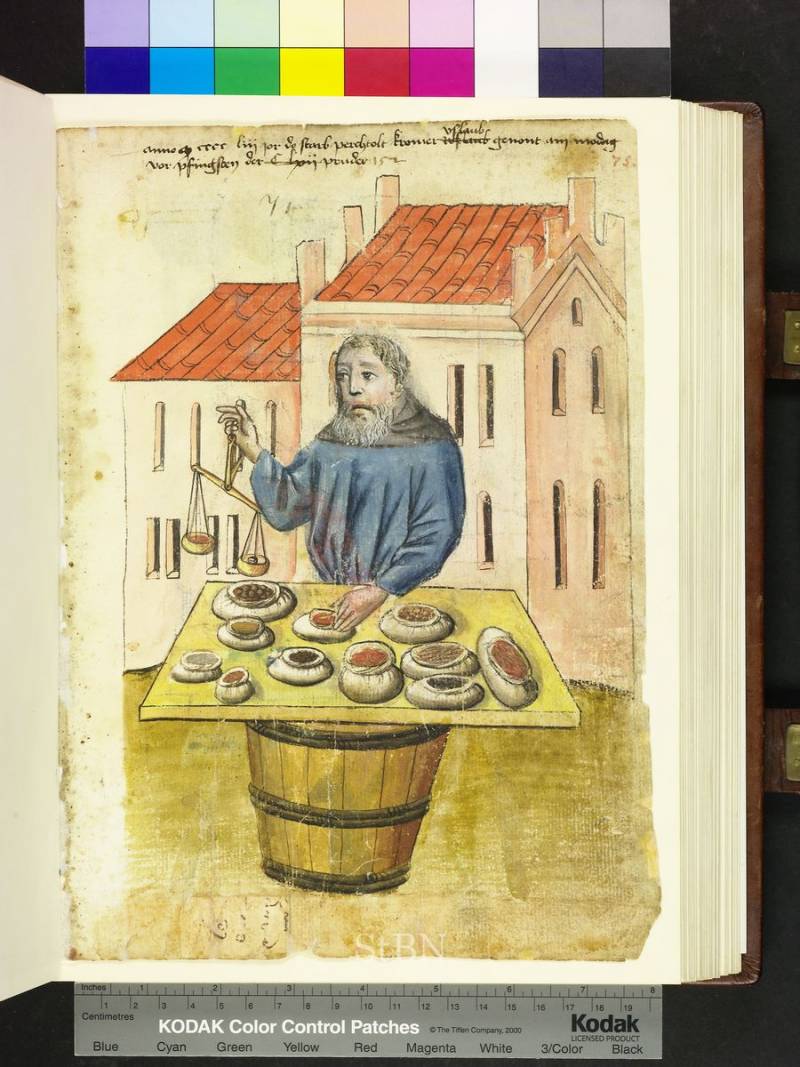 anno m cccc liii jor dz starb perchtolt kromer
vslaub genont am
vor pfingsten der C pruder 152
75.
71
StBN
Inches 1 2 3 4 5 6 7 8
Centimetres 1 2 3 4 5 6 7 8 9 10 11 12 13 14 15 16 17 18 19
KODAK Color Control Patches © The Tiffen Company, 2000 Kodak
LICENSED PRODUCT
Blue Cyan Green Yellow Red Magenta White 3/Color Black